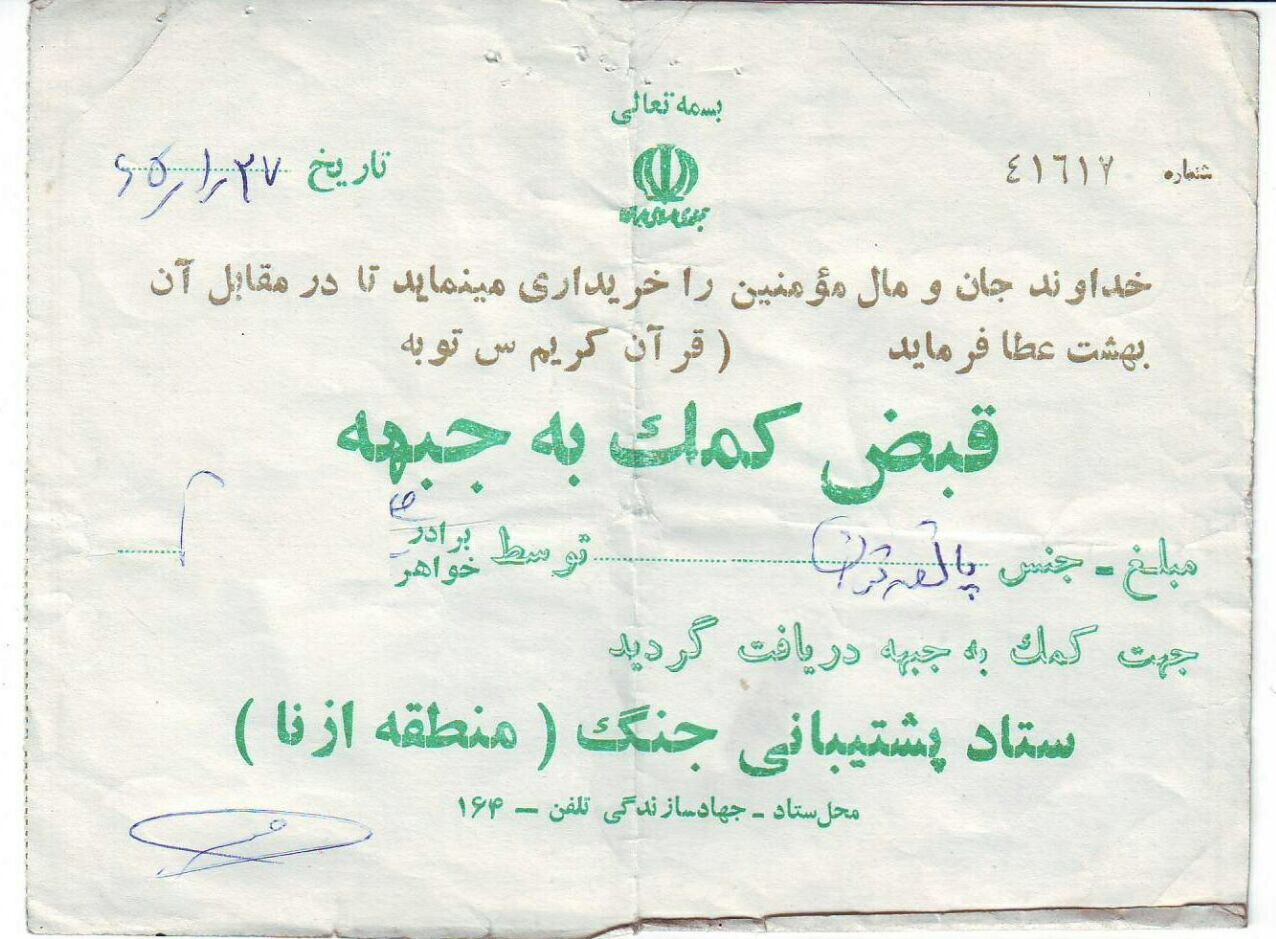 بسمه تعالی
شماره ٤١٦١٧
تاریخ ۲۷/۱/۶۵
جمهوری اسلامی ایران
خداوند جان و مال مؤمنین را خریداری مینماید تا در مقابل آن
بهشت عطا فرماید ( قرآن کریم س توبه
قبض کمك به جبهه
مبلغ ـ جنس توسط برادر
خواهر
جهت کمك به جبهه دریافت گردید
ستاد پشتیبانی جنگ ( منطقه ازنا )
محل ستاد ـ جهادسازندگی تلفن — ۱۶۴